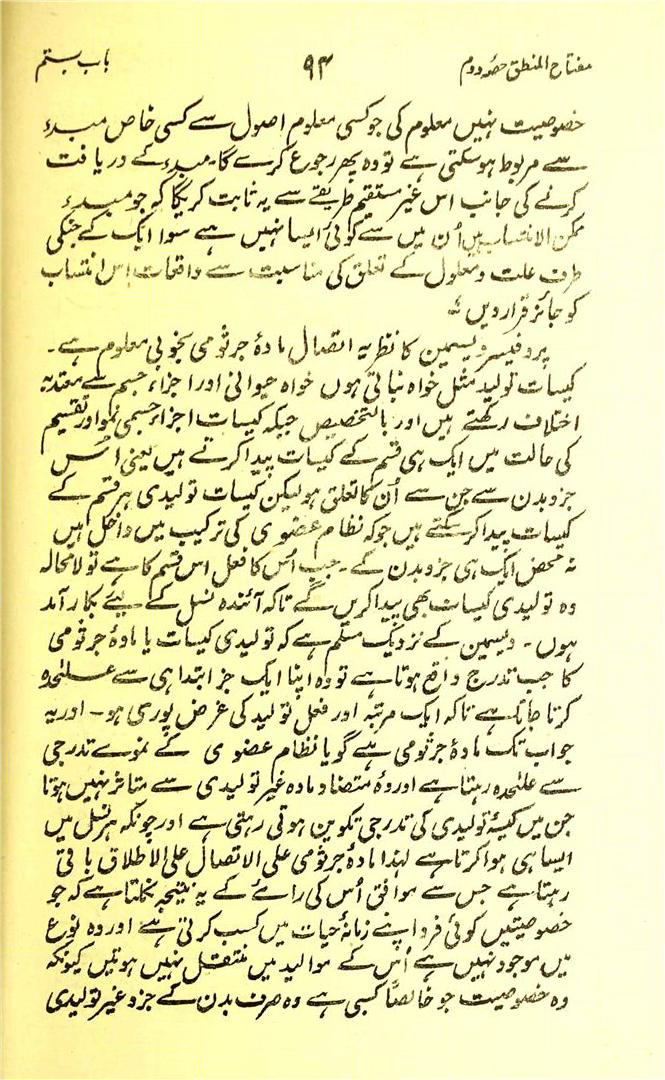 مفتاح المنطق حصہ دوم ۹۴ باب بستم
خصوصیت نہیں معلوم کی جو کسی معلوم اصول سے کسی خاص مبدء
سے مربوط ہو سکتی ہے تو وہ پھر رجوع کرے گا۔ مبدء کے دریافت
کرنے کی جانب اس غیر مستقیم طریقے سے یہ ثابت کریگا کہ جو مبدء
ممکن الانتساب ہیں اُن میں سے کوئی ایسا نہیں ہے سوا ایک کے جنکی
طرف علت و معلول کے تعلق کی مناسبت سے واقعات اِس انتساب
کو جائز قرار دیں
پروفیسر ویسمین کا نظریہ اتصال مادۂ جرثومی بخوبی معلوم ہے۔
کیسات تولید مثل خواہ نباتی ہوں خواہ حیوانی اور اجزاء جسم سے معتدبہ
اختلاف رکھتے ہیں اور بالتخصیص جبکہ کیسات اجزاء جسمی نمو اور تقسیم
کی حالت میں ایک ہی قسم کے کیسات پیدا کرتے ہیں یعنی اُس
جزو بدن سے جن سے اُن کا تعلق ہو لیکن کیسات تولیدی ہر قسم کے
کیسات پیدا کر سکتے ہیں جو کہ نظام عضوی کی ترکیب میں داخل ہیں
نہ محض ایک ہی جزو بدن کے۔ جب اُس کا فعل اس قسم کا ہے تو لا محالہ
وہ تولیدی کیسات بھی پیدا کریں گے تاکہ آئندہ نسل کے لیئے بکار آمد
ہوں۔ ویسمین کے نزدیک مسلم ہے کہ تولیدی کیسات یا مادۂ جرثومی
کا جب تدرج واقع ہوتا ہے تو وہ اپنا ایک جز ابتدا ہی سے علٰحدہ
کرتا جاتا ہے تاکہ ایک مرتبہ اور فعل تولید کی غرض پوری ہو۔ اور یہ
جو اب تک مادۂ جرثومی ہے گویا نظام عضوی کے نموے تدرجی
سے علٰحدہ رہتا ہے اور وہ متضاد مادہ غیر تولیدی سے متاثر نہیں ہوتا
جن میں کیسۂ تولیدی کی تدرجی تکوین ہوتی رہتی ہے اور چونکہ ہر نسل میں
ایسا ہی ہوا کرتا ہے لہٰذا مادۂ جرثومی علی الاتصال علی الاطلاق باقی
رہتا ہے جس سے موافق اُس کی رائے کے یہ نتیجہ نکلتا ہے کہ جو
خصوصیتیں کوئی فرد اپنے زمانۂ حیات میں کسب کرتی ہے اور وہ نوع
میں موجود نہیں ہے اُس کے موالید میں منتقل نہیں ہوتیں کیونکہ
وہ خصوصیت جو خالصاً کسبی ہے وہ صرف بدن کے جزو غیر تولیدی